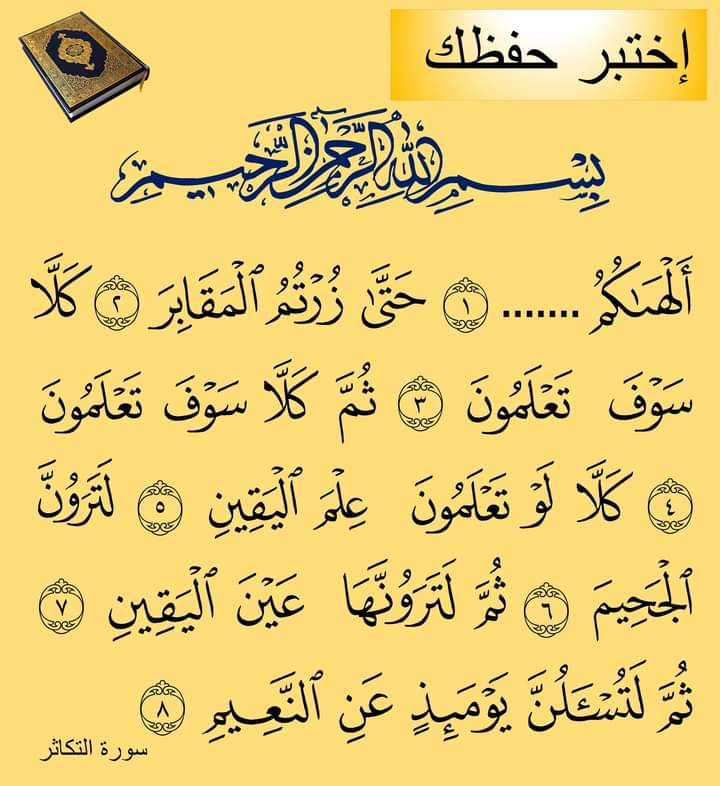 إختبر حفظك
بِسْمِ اللهِ الرَّحْمٰنِ الرَّحِيمِ
أَلْهَىٰكُمُ ....... ١ حَتَّىٰ زُرْتُمُ ٱلْمَقَابِرَ ٢ كَلَّا
سَوْفَ تَعْلَمُونَ ٣ ثُمَّ كَلَّا سَوْفَ تَعْلَمُونَ
٤ كَلَّا لَوْ تَعْلَمُونَ عِلْمَ ٱلْيَقِينِ ٥ لَتَرَوُنَّ
ٱلْجَحِيمَ ٦ ثُمَّ لَتَرَوُنَّهَا عَيْنَ ٱلْيَقِينِ ٧
ثُمَّ لَتُسْـَٔلُنَّ يَوْمَئِذٍ عَنِ ٱلنَّعِيمِ ٨
سورة التكاثر